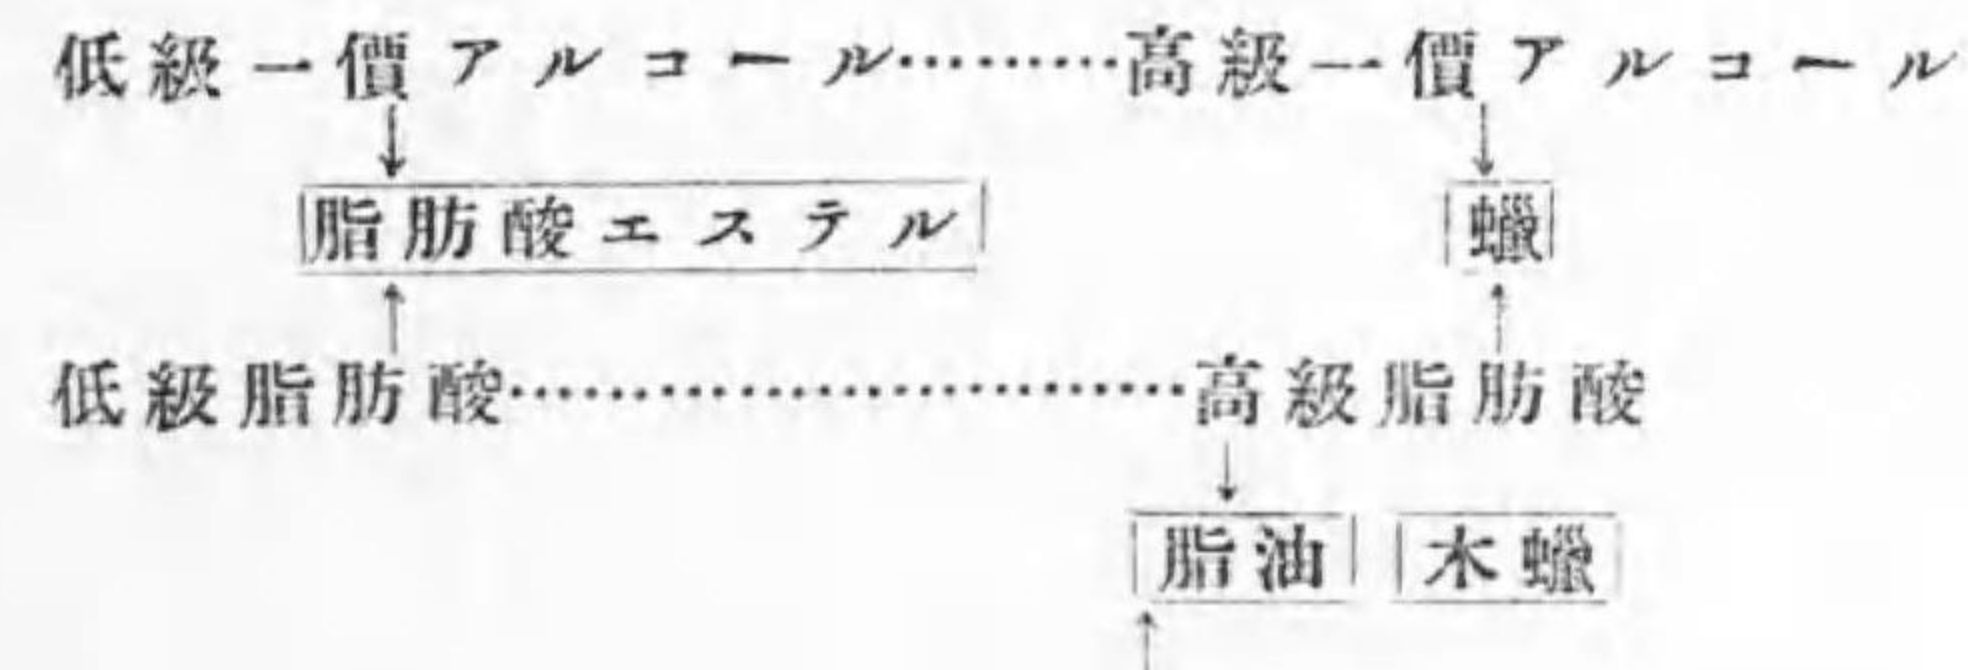 低級一價アルコール………高級一價アルコール
脂肪酸エステル 蠟
低級脂肪酸…………………………高級脂肪酸
脂油 木蠟